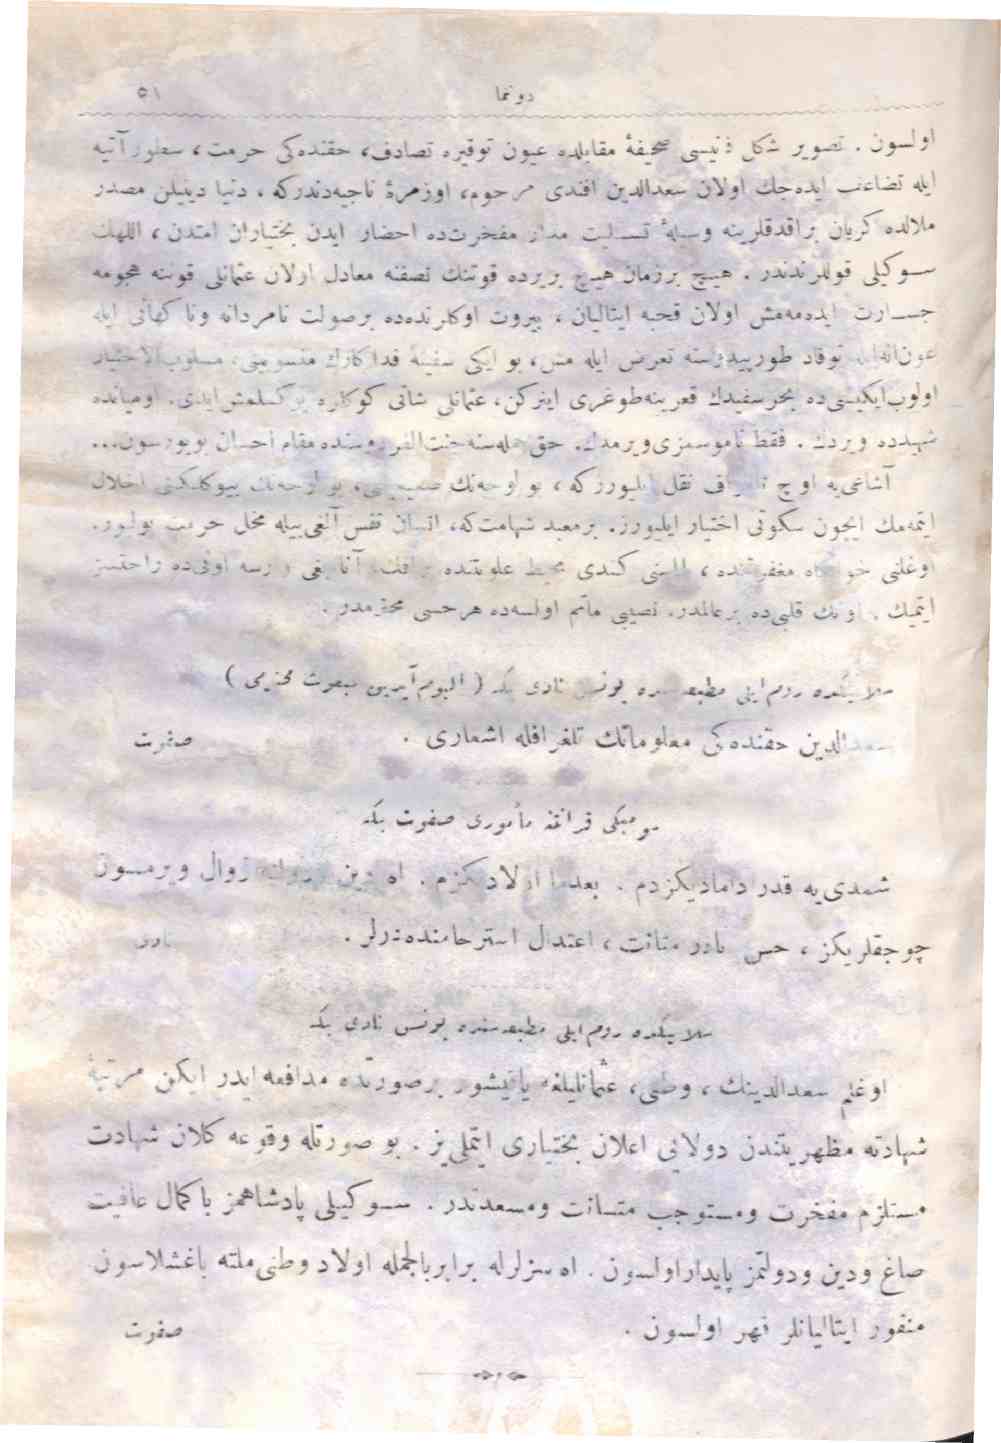 دوننما ٥١
اولسون . تصویر شکل ذنیسی صحیفهٔ مقابله‌ده عیون توقیره تصادف، حقنده‌کی حرمت، سطور آتیه
ایله تضاعف ایده‌جك اولان سعدالدین افندی مرحوم، او زمرهٔ ناجیه‌دندرکه، دنیا دینیلن مصدر
ملالده کریان براقدقلرینه وسیلهٔ تسلیت مدار مفخرت‌ده احضار ایدن بختیاران امتدن، اللهك
سوکیلی قوللرندندر . هیچ برزمان هیچ بریرده قوتنك نصفنه معادل اولان عثمانلی قوتنه هجومه
جسارت ایده‌مه‌مش اولان قحبه ایتالیان، بیروت اوکلرنده‌ده برصولت نامردانه وناکهانی ایله
عون‌الله ایله توقاد طورپیدوسنه تعرض ایله‌مش، بو ایکی سفینهٔ فداکارك منسوبینی، مسلوب‌الاختیار
اولوب ایکیسی‌ده بحرسفیدك قعرینه‌طوغری اینرکن، عثمانلی شانی کوکلره یوکسلمش‌ایدی. اومیانده
شهیدده ویردك . فقط ناموسمزی‌ویرمدك. حق جمله‌سنه جنت‌الفردوسنده مقام احسان بویورسون...
آشاغی‌یه اوچ تلغراف نقل ایلیورزکه، بو لوحه‌نك بیوکلکنی اخلال
ایتمه‌مك ایچون سکوتی اختیار ایلیورز. برمعبد شهامت‌که، انسان نفس آلغی‌بیله مخل حرمت بولیور.
اوغلنی مغفرتنده، کندی محیط علویتنده آنا اونی‌ده راحتسز
ایتمیك . اونك قلبی‌ده برعالمدر. نصیبی ماتم اولسه‌ده هرحسی محترمدر .
سلانیکده روم‌ایلی مطبعه‌سنده یونس نادی بکه
سعدالدین حقنده‌کی معلوماتك تلغرافله اشعاری . صفوت
قرانتنه مأموری صفوت بکه
شمدی‌یه قدر دامادیکزدم . بعدما اولادیکزم. الله دین زوال ویرمسون
چوجقلریکز، حس متانت، اعتدال استرحامنده‌درلر. نادی
سلانیکده روم‌ایلی مطبعه‌سنده یونس نادی بکه
اوغلم سعدالدینك، وطنی، عثمانلیلغه یاقیشور برصورتده مدافعه ایدر ایکن مرتبهٔ
شهادته مظهریتندن دولایی اعلان بختیاری ایتملی‌یز. بو صورتله وقوعه کلان شهادت
مستلزم مفخرت ومستوجب متسانت ومسعدتدر. سوکیلی پادشاهمز باکمال عافیت
صاغ ودین ودولتمز پایدار اولسون. الله سزلرله برابر بالجمله اولاد وطنی ملته باغشلاسون
منفور ایتالیانلر قهر اولسون . صفوت